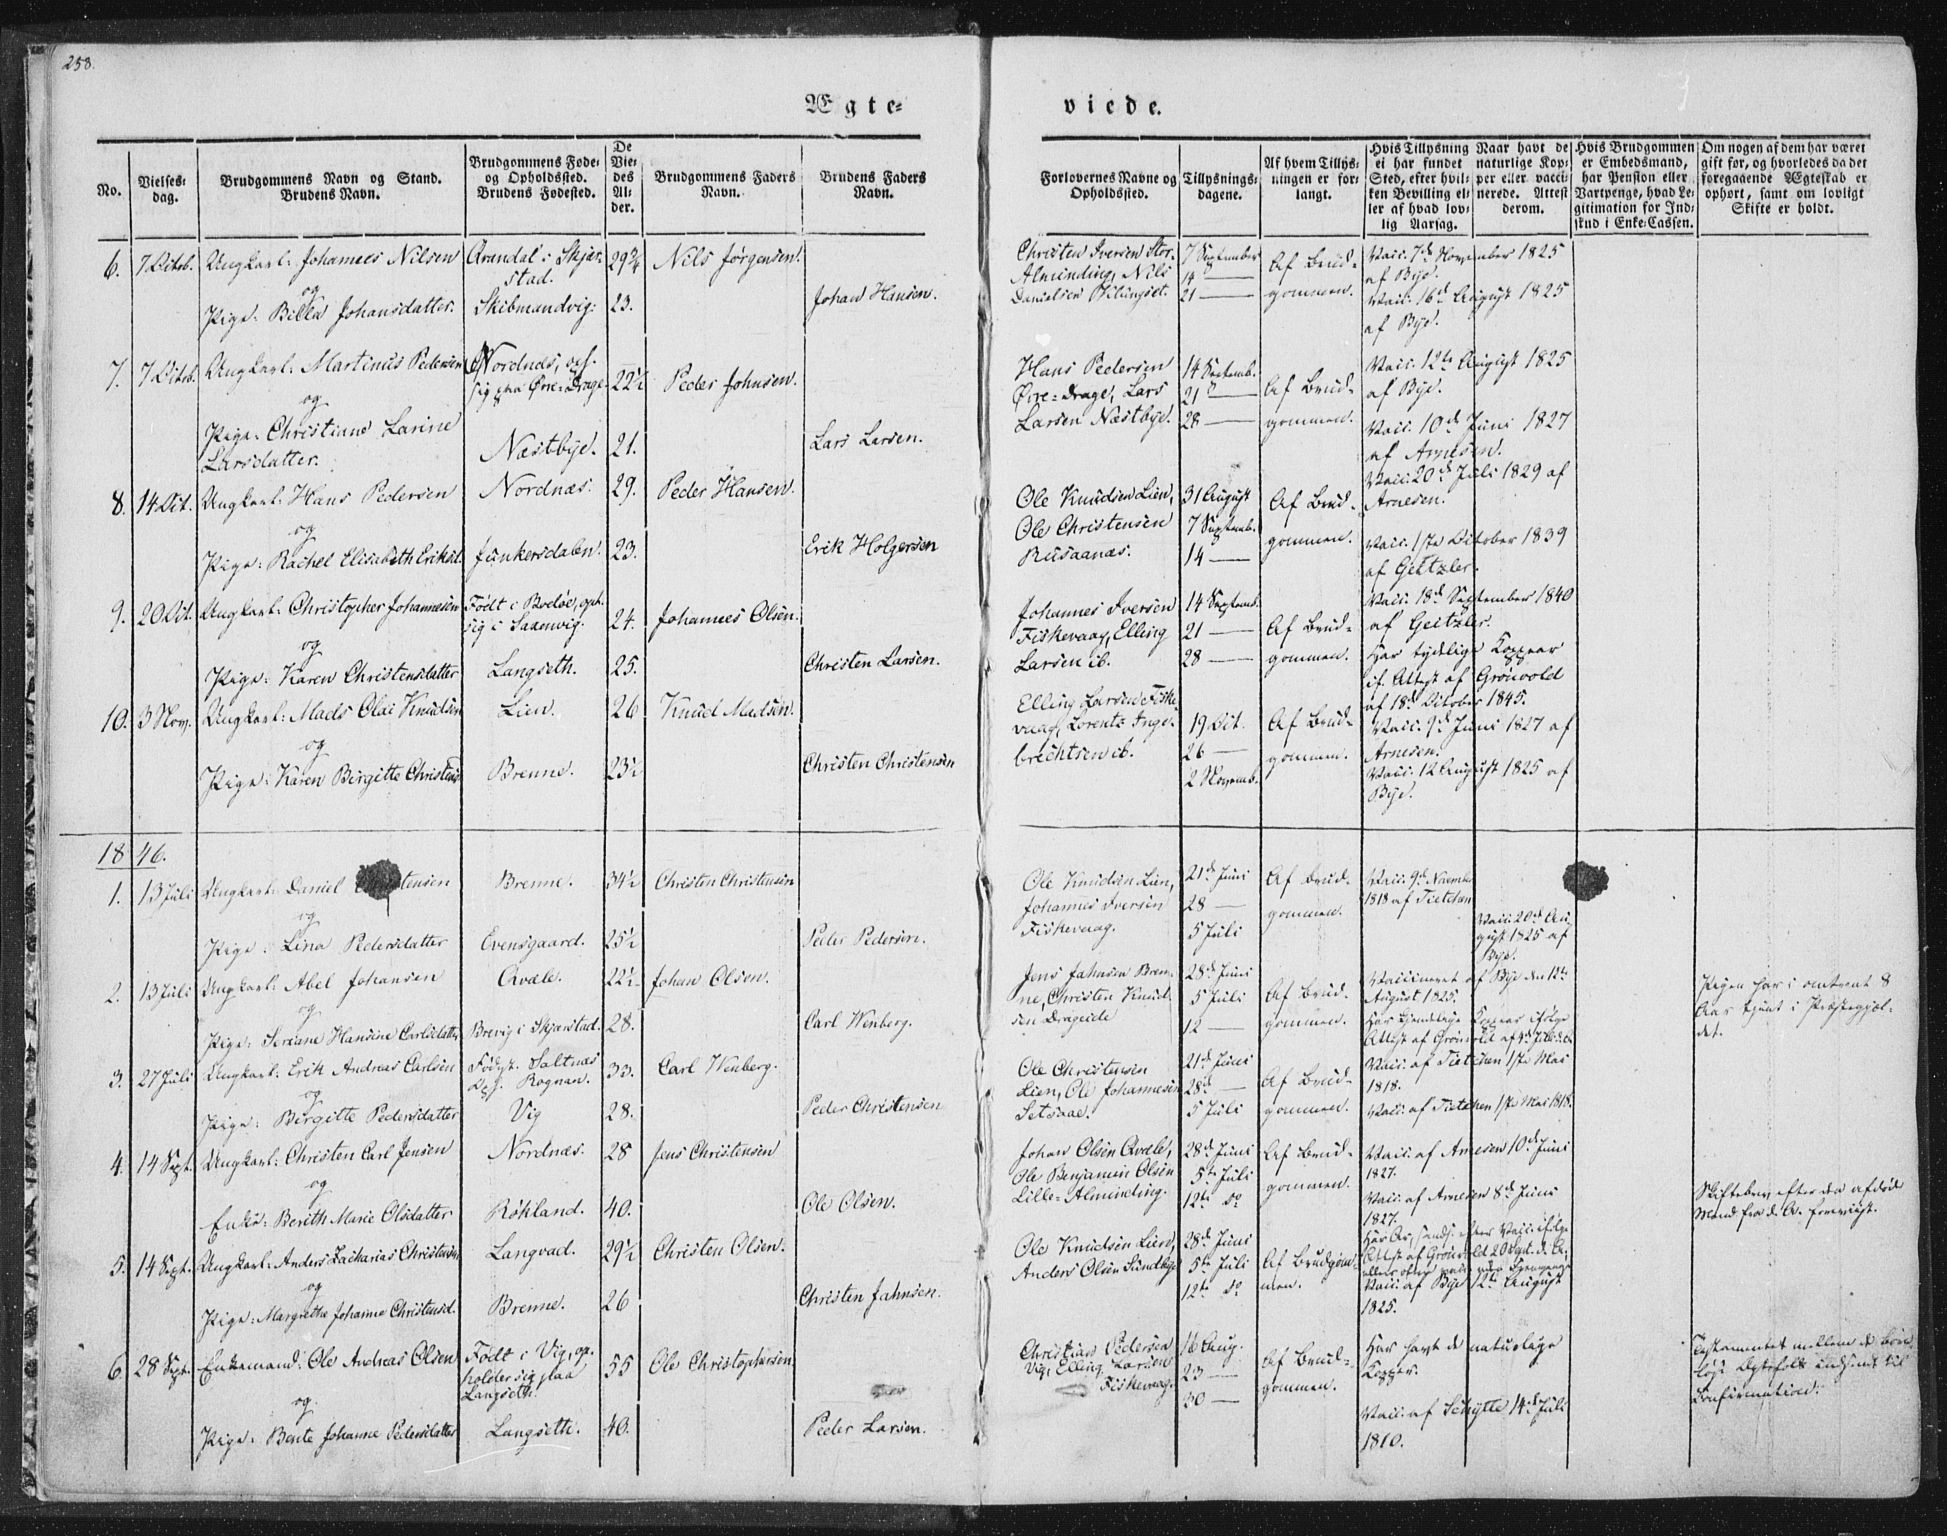 258.
Ægte=
viede.
No.
Vielses-
dag.
Brudgommens Navn og Stand.
Brudens Navn.
Brudgommens Føde-
og Opholdssted.
Brudens Fødested.
De
Vie-
des
Al-
der.
Brudgommens Faders
Navn.
Brudens Faders
Navn.
Forlovernes Navne og
Opholdssted.
Tillysnings-
dagene.
Af hvem Tillys-
ningen er for-
langt.
Hvis Tillysning
ei har fundet
Sted, efter hvil-
ken Bevilling el-
ler af hvad lov-
lig Aarsag.
Naar havt de
naturlige Kop-
per eller vacci-
nerede. Attest
derom.
Hvis Brudgommen
er Embedsmand,
har Pension eller
Vartpenge, hvad Le-
gitimation for Ind-
skud i Enke-Cassen.
Om nogen af dem har været
gift før, og hvorledes da det
foregaaende Ægteskab er
ophørt, samt om lovligt
Skifte er holdt.
6. 7 Octob. Ungkarl: Johannes Nilsen Arendal i Skjær-
stad. 29¾ Nils Jørgensen.
og
Pige: Billa Johansdatter. Skibmandvig: 23. Johan Hansen.
Christen Iversen Stor-
Alminding, Nils
Danielsen
7 September
14 —
21 —
Af Brud-
gommen.
Vacc. 7de November 1825
af Bye.
Vacc. 16de August 1825
af Bye.
7. 7 Octob. Ungkarl: Martinus Pedersen Nordnæs, oph.
sig paa Øvre-Drage. 22½ Peder Johnsen.
og
Pige: Christiane Larine
Larsdatter. Næstbye. 21. Lars Larsen.
Hans Pedersen
Øvre=Drage, Lars
Larsen Næstbye.
14 Septemb.
21 —
28 —
Af Brud-
gommen.
Vacc. 12te August 1825
af Bye.
Vacc. 10de Juni 1827
af Arnesen.
8. 14 Oct. Ungkarl: Hans Pedersen Nordnæs. 29. Peder Hansen.
og
Pige: Rachel Elisabeth Eriksd. Junkersdalen. 23. Erik Holgersen
Ole Knudsen Lien,
Ole Christensen
Rusaanæs.
31 August
7 Septemb.
14 —
Af Brud-
gommen.
Vacc. 20de Juli 1829 af
Arnesen.
Vacc. 1ste October 1839
af Geitzler.
9. 20 Oct. Ungkarl: Christopher Johannesen Født i Bodøe, oph.
sig i Saxenvig. 24. Johannes Olsen.
og
Pige: Karen Christensdatter Langseth. 25. Christen Larsen.
Johannes Iversen
Fiskevaag, Elling
Larsen ib.
14 Septemb.
21 —
28 —
Af Brud-
gommen.
Vacc. 18de September 1840
af Geitzler.
Har tydelige Kopper
if. Attest af Grønvold
af 18de October 1845.
10. 3 Nov. Ungkarl: Mads Olai Knudsen Lien. 26 Knud Madsen.
og
Pige: Karen Birgitte Christens. Brenne. 23½ Christen Christensen
Elling Larsen Fiske-
vaag, Lorentz Inge-
brechtsen ib.
19 Oct.
26 —
2 Novemb.
Af Brud-
gommen.
Vacc. 9de Juni 1827 af
Arnesen.
Vacc. 12 August 1825 af
Bye.
1846.
1. 13 Juli Ungkarl: Daniel Christensen Brenne. 34½ Christen Christensen
og
Pige: Lina Pedersdatter Evensgaard. 25½ Peder Pedersen.
Ole Knudsen Lien,
Johannes Iversen
Fiskevaag.
21de Juni
28 —
5 Juli
Af Brud-
gommen.
Vacc. 9de Novembr
1818 af Tietchen
Vacc. 20de Au-
gust 1825 af
Bye.
2. 13 Juli Ungkarl: Abel Johansen Qvæle. 22½ Johan Olsen.
og
Pige: Seriane Hansine Carlsdatter Brevig i Skjærstad. 28. Carl Wenberg.
Jens Jahnsen Bren-
ne, Christen Knud-
sen Drageide
28de Juni
5 Juli
12 —
Af Brud-
gommen.
Vaccineret af Bye den 12te
August 1825.
Har kjendelige Kopper ifølge
Attest af Grønvold af 4de Juli d. A.
Pigen har i omtrent 8
Aar tjent i Præstegjæl-
det.
3. 27 Juli Ungkarl: Erik Andreas Carlsen Født. Saltnæs
Oph. Rognan. 33. Carl Wenberg.
og
Pige: Birgitte Pedersdatter Vig 28. Peder Christensen
Ole Christensen
Lien, Ole Johannesen
Setsaae.
21de Juni
28de —
5 Juli
Af Brud-
gommen.
Vacc. af Tietchen 1ste Mai
1818.
Vacc. af Tietchen 1ste Mai 1818.
4. 14 Sept. Ungkarl: Christen Carl Jensen Nordnæs. 28 Jens Christensen
og
Enke: Berith Marie Olsdatter Røkland. 40. Ole Olsen.
Johan Olsen Qvæle,
Ole Benjamin Olsen
Lille=Alminding.
28de Juni
5te Juli
12te do
Af Brud-
gommen.
Vacc. af Arnesen 10de Juni
1827.
Vacc. af Arnesen 8de Juni
1827.
Skiftebrev efter den afdøde
Mand fra d. A. foreviist.
5. 14 Sept. Ungkarl: Anders Zacharias Christensen Langvad. 29½ Christen Olsen.
og
Pige: Margrethe Johanne Christensd. Brenne. 26 Christen Jahnsen.
Ole Knudsen Lien,
Anders Olsen Sundbye
28de Juni
5te Juli
12te do
Af Brudgom-
men.
Har Ar, efter Vacc. ifølge
Attst af Grønvold 20 Sept. d. A.
Vacc. af Bye 12te August
1825.
6. 28 Sept. Enkemand: Ole Andreas Olsen Født i Vig, op-
holder sig paa
Langseth. 55 Ole Christophersen
og
Pige: Bente Johanne Pedersdatter Langseth. 40. Peder Larsen.
Christian Pedersen
Vig, Elling Larsen
Fiskevaag.
16 Aug.
23 —
30 —
Af Brud-
gommen.
Har havt de naturlige
Kopper.
Vacc. af Schytte 14de Juli
1810.
Testamentet mellem de barn-
løse Ægtefolk indsendt til
Confirmation.